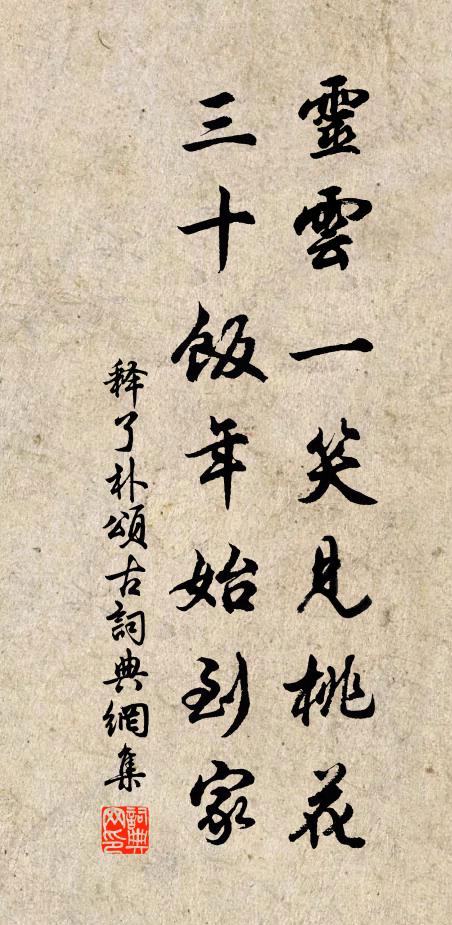 靈雲一笑見桃花
三十飯年始到家
释了朴頌古詞典網集
詞典
网印